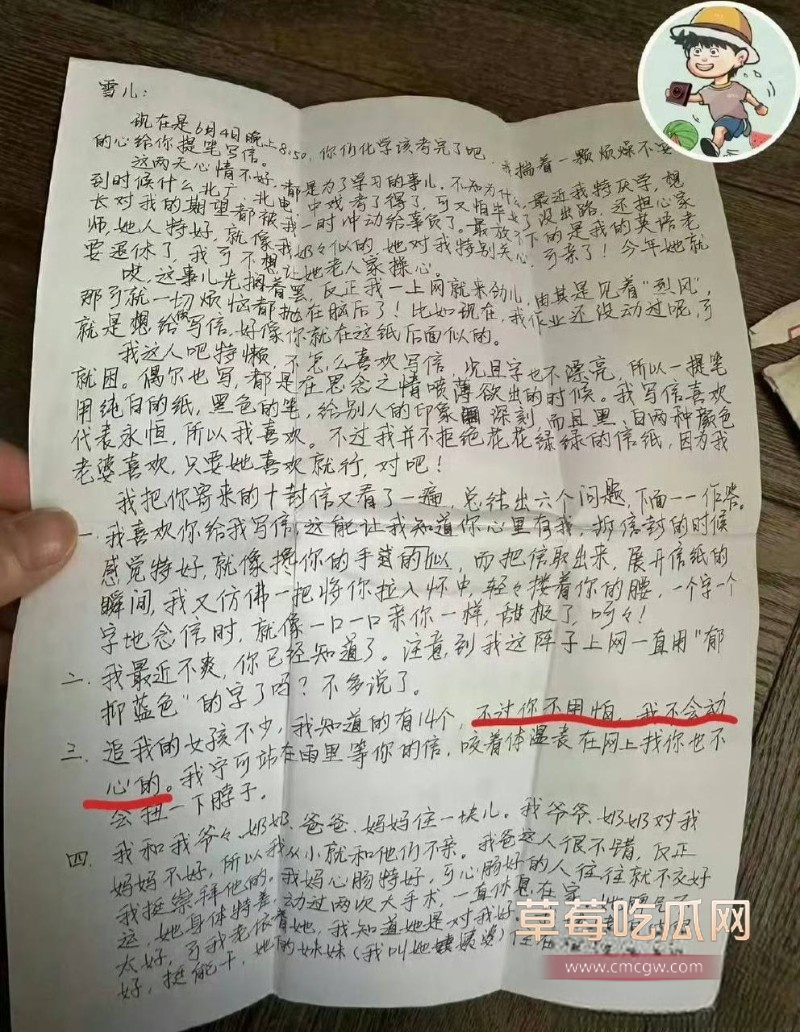 雪儿：
现在是6月4日晚上8:50，你们化学该考完了吧，我揣着一颗烦燥不安
的心给你提笔写信。
这两天心情不好，都是为了学习的事儿，不知为什么，最近我特厌学，想
到时候什么北广、北电、中戏考了得了，可又怕毕业了没出路，还担心家
长对我的期望都被我一时冲动给辜负了。最放不下的是我的英语老
师，她人特好，就像我奶々似的，她对我特别关心，可亲了！今年她就
要退休了，我可不想让她老人家操心。
哎，这事儿先搁着罢，反正我一上网就来劲儿，由其是见着“烈风”，
那可就一切烦恼都抛在脑后了！比如现在，我作业还没动过呢，可
就是想给你写信，好像你就在这纸后面似的。
我这人吧特懒，不怎么喜欢写信，况且字也不漂亮，所以一提笔
就困。偶尔也写，都是在思念之情喷薄欲出的时候。我写信喜欢
用纯白的纸，黑色的笔，给别人的印象深刻，而且黑、白两种颜色
代表永恒，所以我喜欢。不过我并不拒绝花花绿绿的信纸，因为我
老婆喜欢，只要她喜欢就行，对吧！
我把你寄来的十封信又看了一遍，总结出六个问题，下面一一作答。
一.我喜欢你给我写信，这能让我知道你心里有我，拆信封的时候
感觉特好，就像搀你的手似的，而把信取出来，展开信纸的
瞬间，我又仿佛一把将你拉入怀中，轻々搂着你的腰，一个字一个
字地念信时，就像一口一口亲你一样，甜极了，呵々！
二.我最近不爽，你已经知道了。注意到我这阵子上网一直用“郁
抑蓝色”的字了吗？不多说了。
三.追我的女孩不少，我知道的有14个，不过你不用怕，我不会动
心的。我宁可站在雨里等你的信，咬着体温表在网上找你也不
会扭一下脖子。
四.我和我爷々、奶奶、爸爸、妈妈住一块儿。我爷爷、奶奶对我
妈妈不好，所以我从小就和他们不亲。我爸这人很不错，反正
我挺崇拜他的。我妈心肠特好，可心肠好的人往往就不交好
运，她身体特差，动过两次大手术，一直休息在家
太好，可我老依着她，我知道她是对我好
好，挺能干，她的妹妹（我叫她姨婆）住在
草莓吃瓜网
www.cmcgw.com